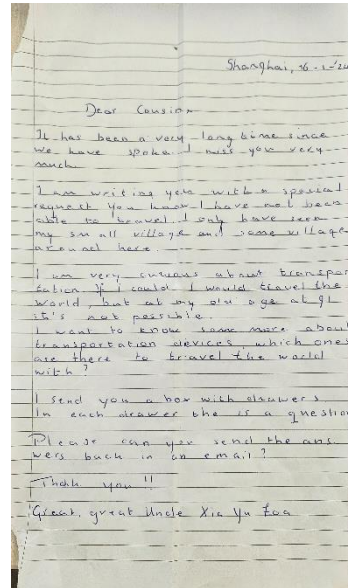 Shanghai, 16-2-'24
Dear Cousin
It has been a very long time since
we have spoke. I miss you very
much.
I am writing you with a special
request you know I have not been
able to travel I only have seen
my small village and some village
around here.
I am very curious about transpor
tation. If I could I would travel the
world, but at my old age at 91
it's not possible.
I want to know some more about
transportation devices, which ones
are there to travel the world
with?
I send you a box with drawers
In each drawer the is a question
Please can you send the ans
wers back in an email?
Thank you!!
Great, great Uncle Xia Yu